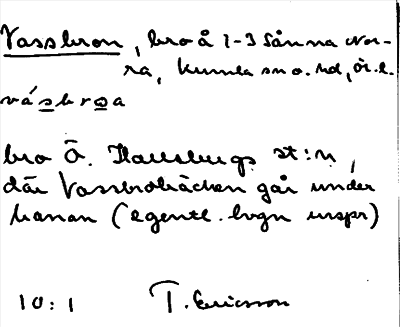 Vassbron, bro å 1-3 Sånna Nor-
ra, Kumla sn o. hd, Ör. l.
vásbrωa
bro Ö. Hallsbergs st:n,
där Vassbrobäcken går under
banan (egentl. bvgn urspr)
10:1 T. Ericsson